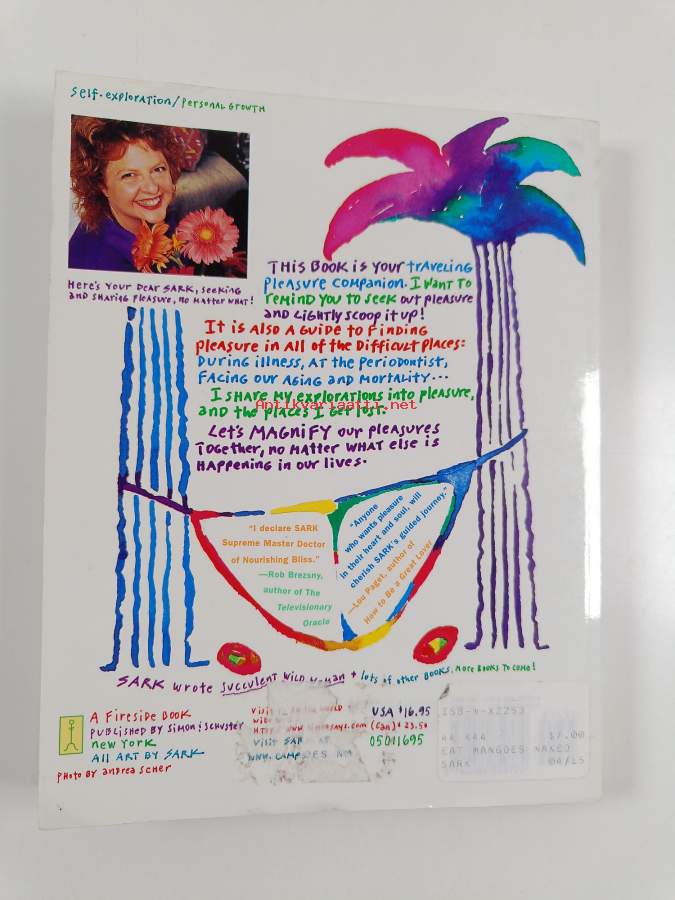 Self-exploration/Personal Growth
Here's your dear SARK, seeking
and sharing pleasure, no matter what!
This Book is your traveling
pleasure companion. I want to
remind you to seek out pleasure
and lightly scoop it up!
It is also a guide to finding
pleasure in all of the difficult places:
During illness, at the periodontist,
facing our aging and mortality...
I share my explorations into pleasure,
and the places I get lost.
Antikvariaatti.net
Let's MAGNIFY our pleasures
together, no matter WHAT else is
happening in our lives.
"I declare SARK
Supreme Master Doctor
of Nourishing Bliss."
—Rob Brezsny,
author of The
Televisionary
Oracle
"Anyone
who wants pleasure
in their heart and soul, will
cherish SARK's guided journey."
—Lou Paget, author of
How to Be a Great Lover
SARK wrote Succulent Wild Woman + lots of other Books. more Books to come!
A Fireside Book
Published by Simon & Schuster
New York
All art by SARK
Photo by Andrea Scher
Visit
Visit SARK at
www.campsark
USA $16.95
(Can) $23.50
05011695
158-4-X2253
44 X44 $7.00
EAT MANGOES NAKED
SARK 04/15